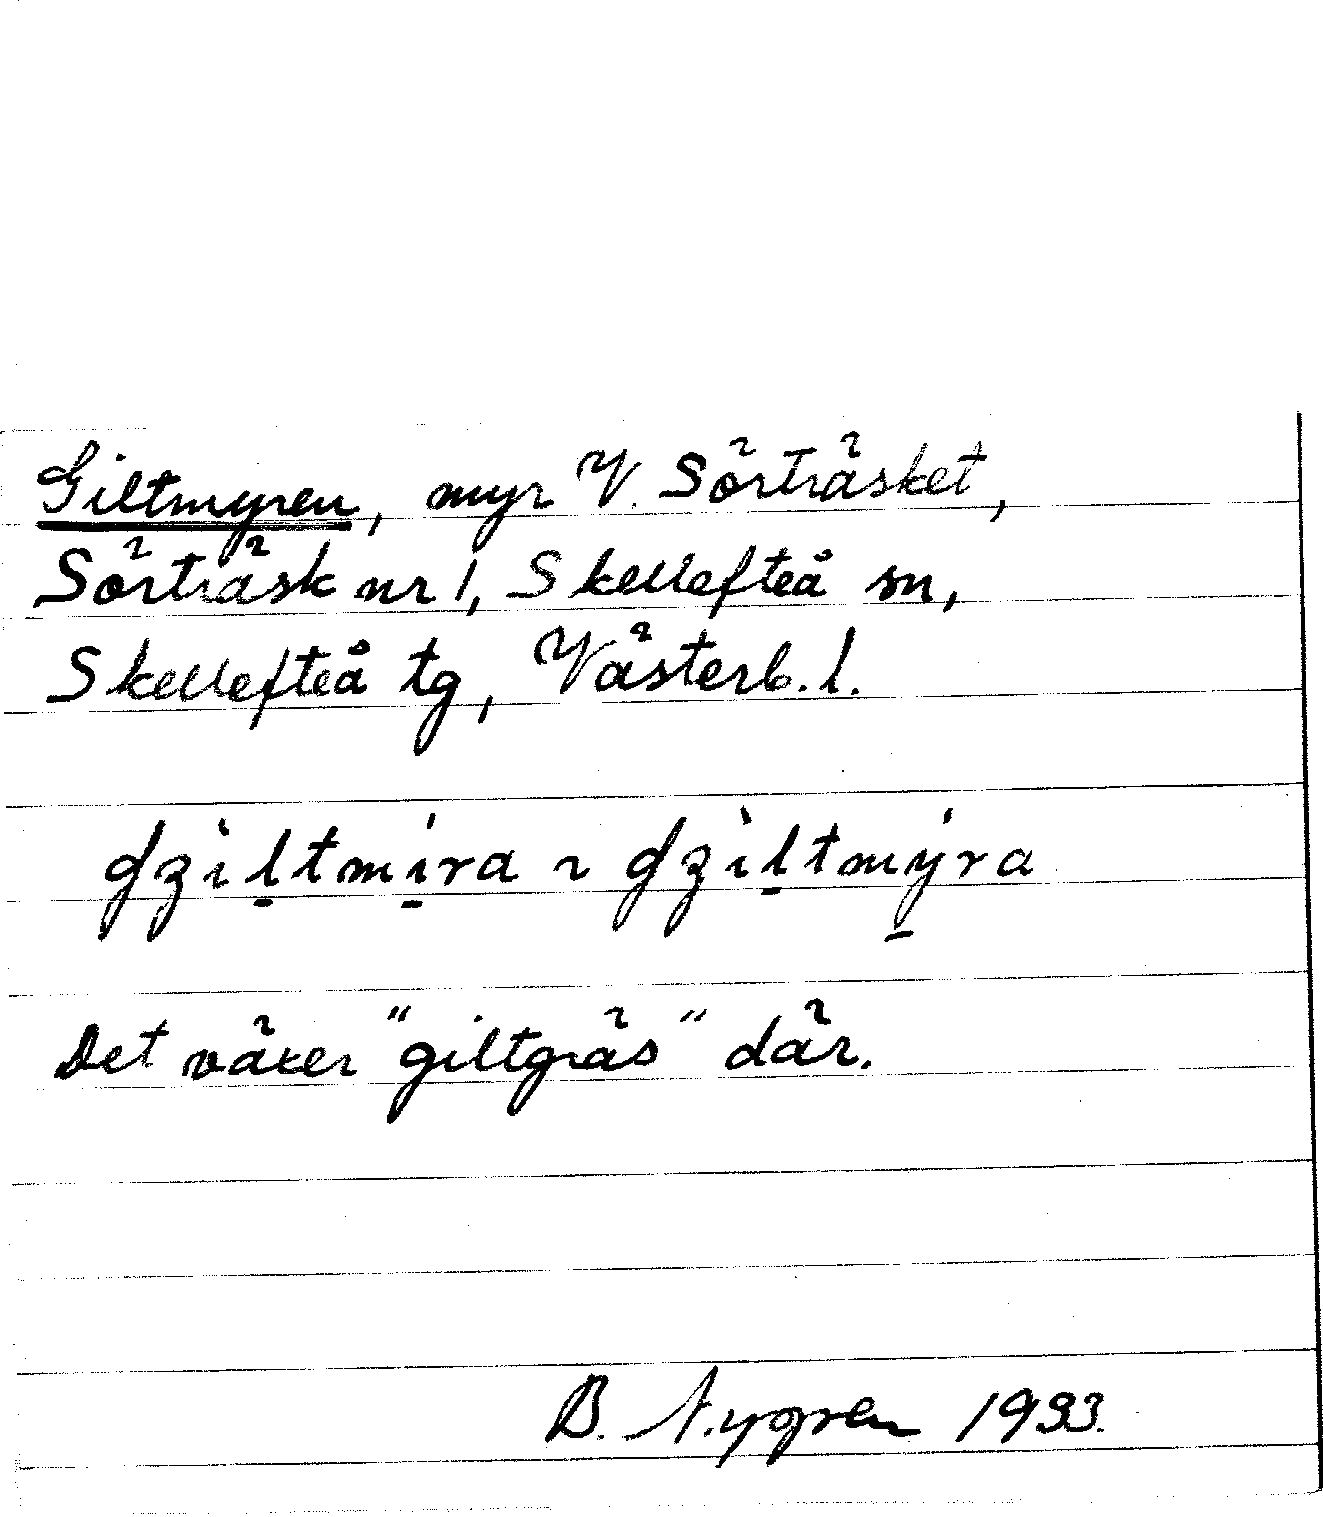 Giltmyren, myr V. Sörträsket,
Sörträsk nr 1, Skellefteå sn,
Skellefteå tg, Västerb. l.
ɠʒìḷtmi̱ra ~ ɠʒìḷtmy̱ra
Det växer "giltgräs" där.
B. Nygren 1933.